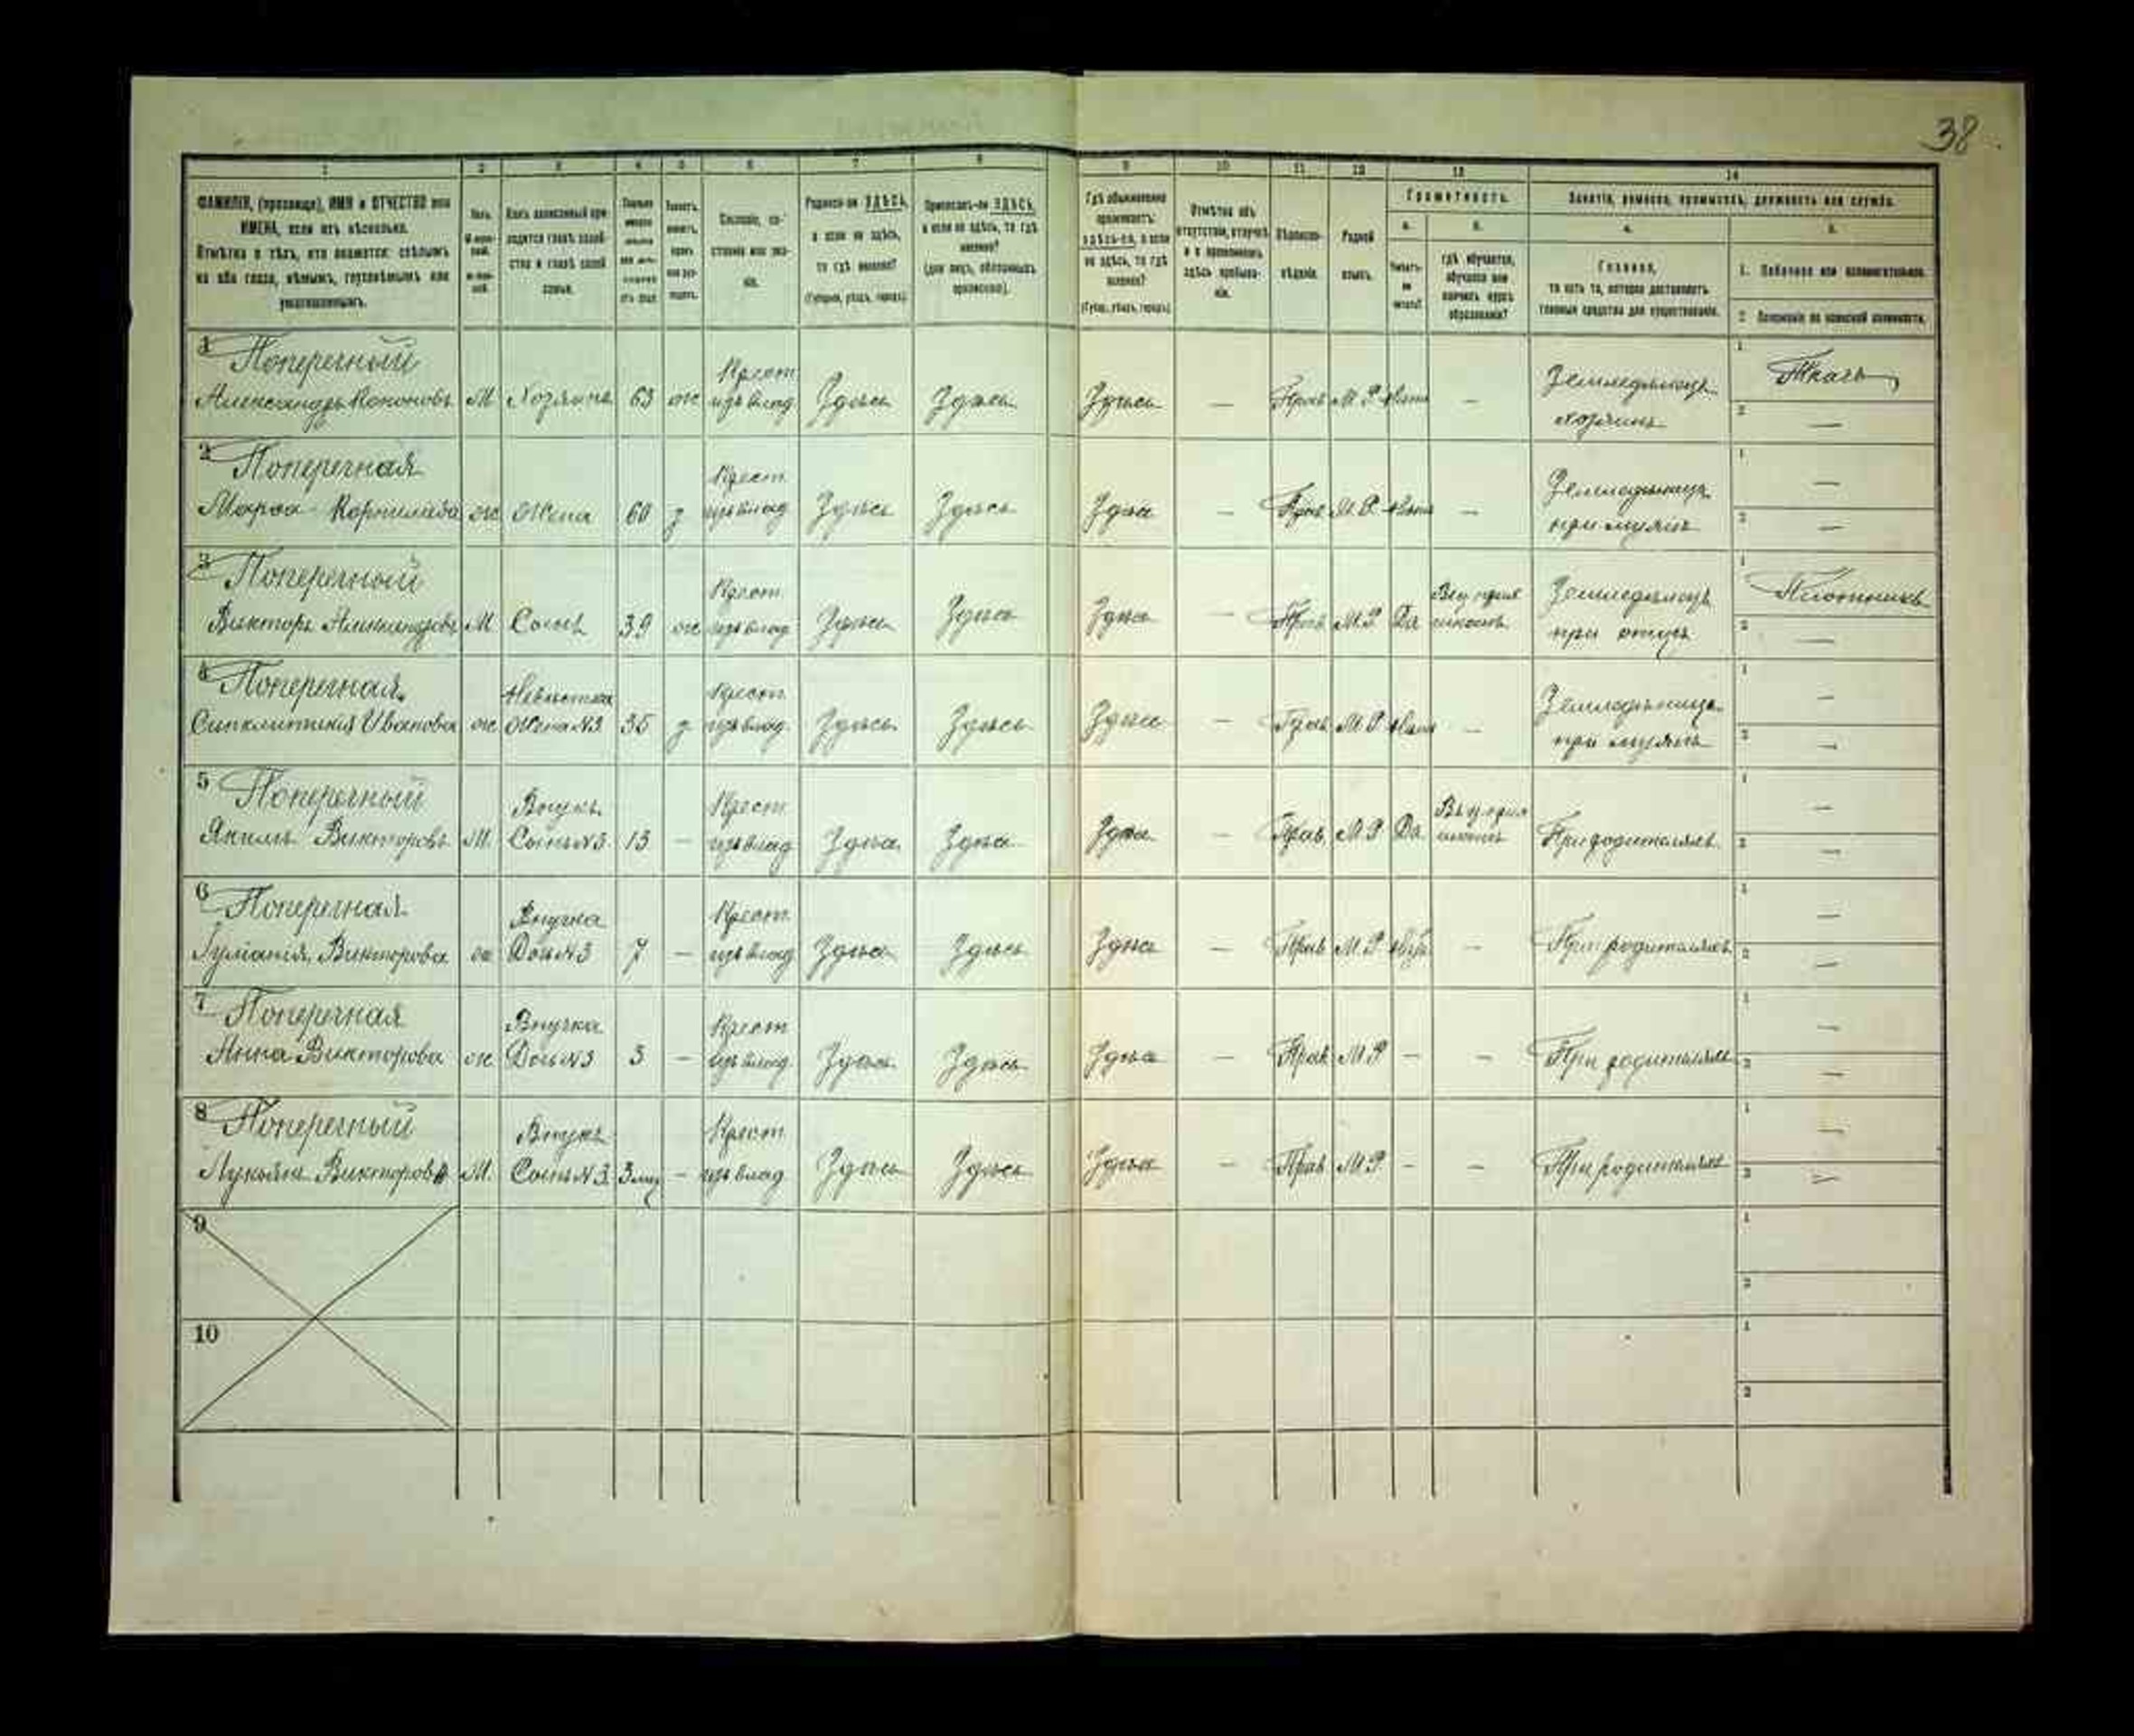 38
1 2 3 4 5 6 7 8 9 10 11 12 13 14
ФАМИЛІЯ, (прозвище), ИМЯ и ОТЧЕСТВО или
ИМЕНА, если ихъ нѣсколько.
Отмѣтка о тѣхъ, кто окажется: слѣпымъ
на оба глаза, нѣмымъ, глухонѣмымъ или
умалишеннымъ.
Полъ.
Какъ записанный при-
ходится главѣ хозяй-
ства и главѣ своей
семьи.
Сословіе, со-
стояніе или зва-
ніе.
Родился-ли ЗДѢСЬ,
а если не здѣсь,
то гдѣ именно?
(Губернія, уѣздъ, городъ).
Приписанъ-ли ЗДѢСЬ,
а если не здѣсь, то гдѣ
именно?
(для лицъ, обязанныхъ
припискою).
Гдѣ обыкновенно
проживаетъ:
здѣсь-ли, а если
не здѣсь, то гдѣ
именно?
(Губер., уѣздъ, городъ)
Отмѣтка объ
отсутствіи, отлучкѣ
и о временномъ
здѣсь пребыва-
ніи.
Вѣроиспо-
вѣданіе.
Родной
языкъ.
Грамотность.
а. б.
Умѣетъ-
ли
читать?
гдѣ обучается,
обучался или
кончилъ курсъ
образованія?
Занятіе, ремесло, промыселъ, должность или служба.
а. б.
Главное,
то есть то, которое доставляетъ
главныя средства для существованія.
1. Побочное или вспомогательное.
2. Положеніе по воинской повинности.
1 Поперечный
Александръ Кононовъ М Хозяинъ 63 ж Крест. изъ влад. Здѣсь Здѣсь Здѣсь — Прав М.Р. — Земледѣлецъ хозяинъ 1 Ткачъ 2 —
2 Поперечная
Марѳа Корнилова ж Жена 60 з Крест. изъ влад. Здѣсь Здѣсь Здѣсь — Прав М.Р. — Земледѣлица при мужѣ 1 — 2 —
3 Поперечный
Викторъ Александровъ М Сынъ 39 ж Крест. изъ влад. Здѣсь Здѣсь Здѣсь — Прав М.Р. Да школѣ Земледѣлецъ при отцѣ 1 Плотникъ 2 —
4 Поперечная
Синклитикія Иванова ж Невѣстка Жена №3 35 з Крест. изъ влад. Здѣсь Здѣсь Здѣсь — Прав М.Р. — Земледѣлица при мужѣ 1 — 2 —
5 Поперечный
Якимъ Викторовъ М. Внукъ Сынъ №3 13 — Крест. изъ влад. Здѣсь Здѣсь Здѣсь — Прав. М.Р. Да школѣ При родителяхъ 1 — 2 —
6 Поперечная
Викторова ж Внучка Дочь №3 7 — Крест. изъ влад. Здѣсь Здѣсь Здѣсь — Прав М.Р. — При родителяхъ 1 — 2 —
7 Поперечная
Анна Викторова ж Внучка Дочь №3 3 — Крест. изъ влад. Здѣсь Здѣсь Здѣсь — Прав М.Р. — — При родителяхъ 1 — 2 —
8 Поперечный
Лукьянъ Викторовъ М. Внукъ Сынъ №3 3 мѣс — Крест. изъ влад. Здѣсь Здѣсь Здѣсь — Прав М.Р. — — При родителяхъ 1 — 2 —
9 1 2
10 1 2